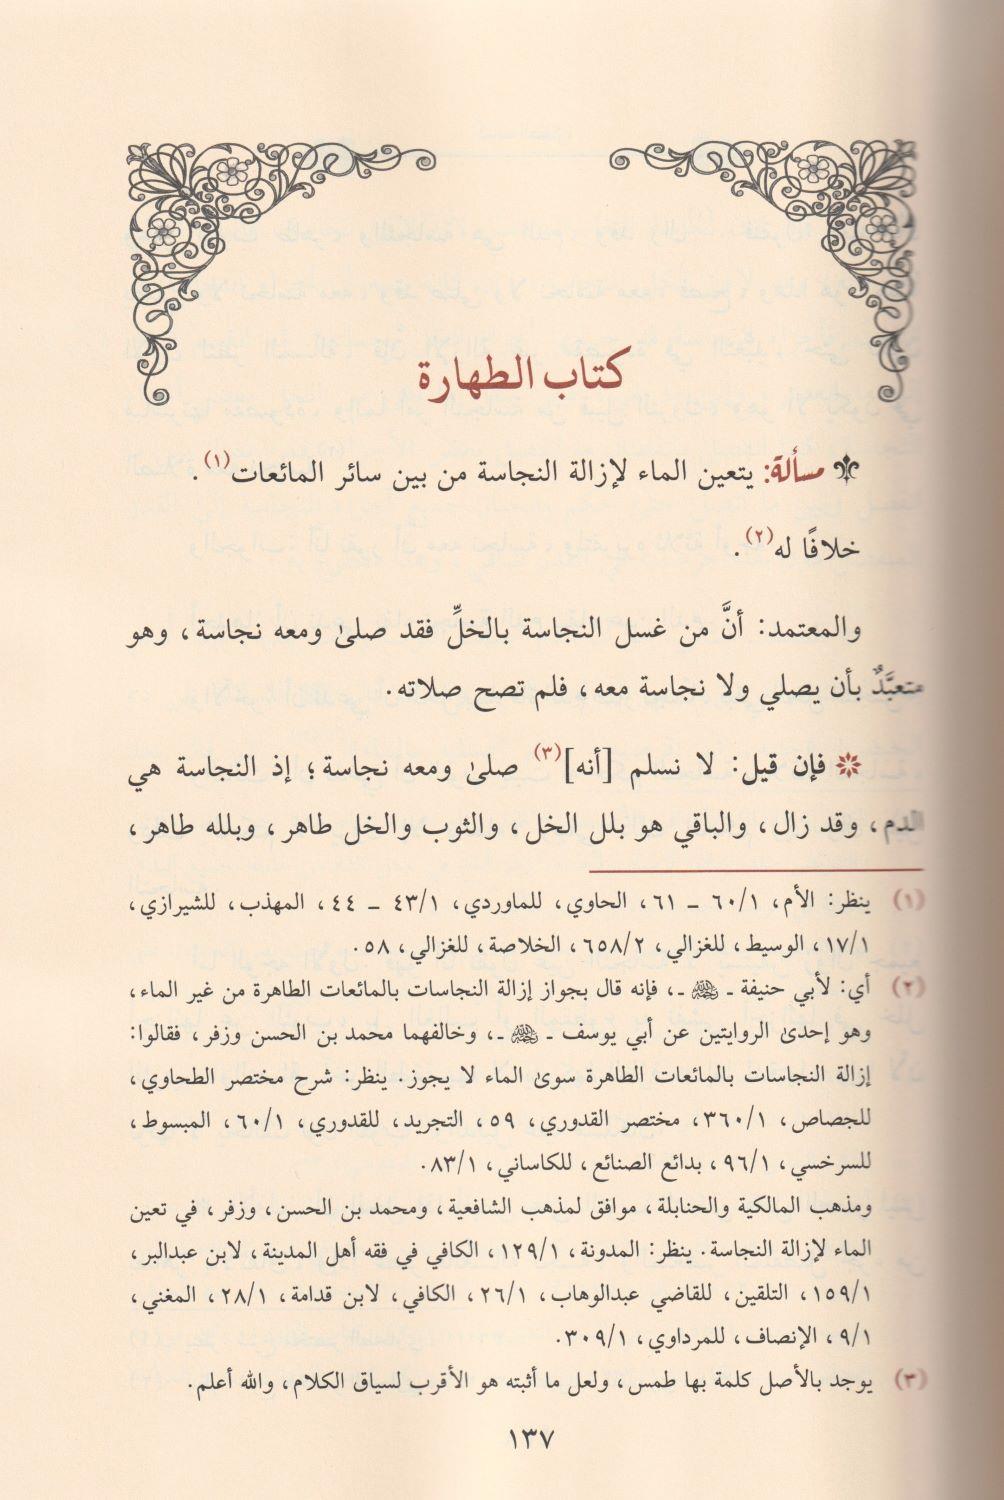 كتاب الطهارة
مسألة: يتعين الماء لإزالة النجاسة من بين سائر المائعات(١).
خلافًا له(٢).
والمعتمد: أنَّ من غسل النجاسة بالخلِّ فقد صلىٰ ومعه نجاسة، وهو
متعبَّدٌ بأن يصلي ولا نجاسة معه، فلم تصح صلاته.
فإن قيل: لا نسلم [أنه](٣) صلىٰ ومعه نجاسة؛ إذ النجاسة هي
الدم، وقد زال، والباقي هو بلل الخل، والثوب والخل طاهر، وبلله طاهر،
(١) ينظر: الأم، ٦٠/١ ـ ٦١، الحاوي، للماوردي، ٤٣/١ ـ ٤٤، المهذب، للشيرازي،
١٧/١، الوسيط، للغزالي، ٦٥٨/٢، الخلاصة، للغزالي، ٥٨.
(٢) أي: لأبي حنيفة ـ رحمه الله ـ، فإنه قال بجواز إزالة النجاسات بالمائعات الطاهرة من غير الماء،
وهو إحدىٰ الروايتين عن أبي يوسف ـ رحمه الله ـ، وخالفهما محمد بن الحسن وزفر، فقالوا:
إزالة النجاسات بالمائعات الطاهرة سوىٰ الماء لا يجوز. ينظر: شرح مختصر الطحاوي،
للجصاص، ٣٦٠/١، مختصر القدوري، ٥٩، التجريد، للقدوري، ٦٠/١، المبسوط،
للسرخسي، ٩٦/١، بدائع الصنائع، للكاساني، ٨٣/١.
ومذهب المالكية والحنابلة، موافق لمذهب الشافعية، ومحمد بن الحسن، وزفر، في تعين
الماء لإزالة النجاسة. ينظر: المدونة، ١٢٩/١، الكافي في فقه أهل المدينة، لابن عبدالبر،
١٥٩/١، التلقين، للقاضي عبدالوهاب، ٢٦/١، الكافي، لابن قدامة، ٢٨/١، المغني،
٩/١، الإنصاف، للمرداوي، ٣٠٩/١.
(٣) يوجد بالأصل كلمة بها طمس، ولعل ما أثبته هو الأقرب لسياق الكلام، والله أعلم.
١٣٧